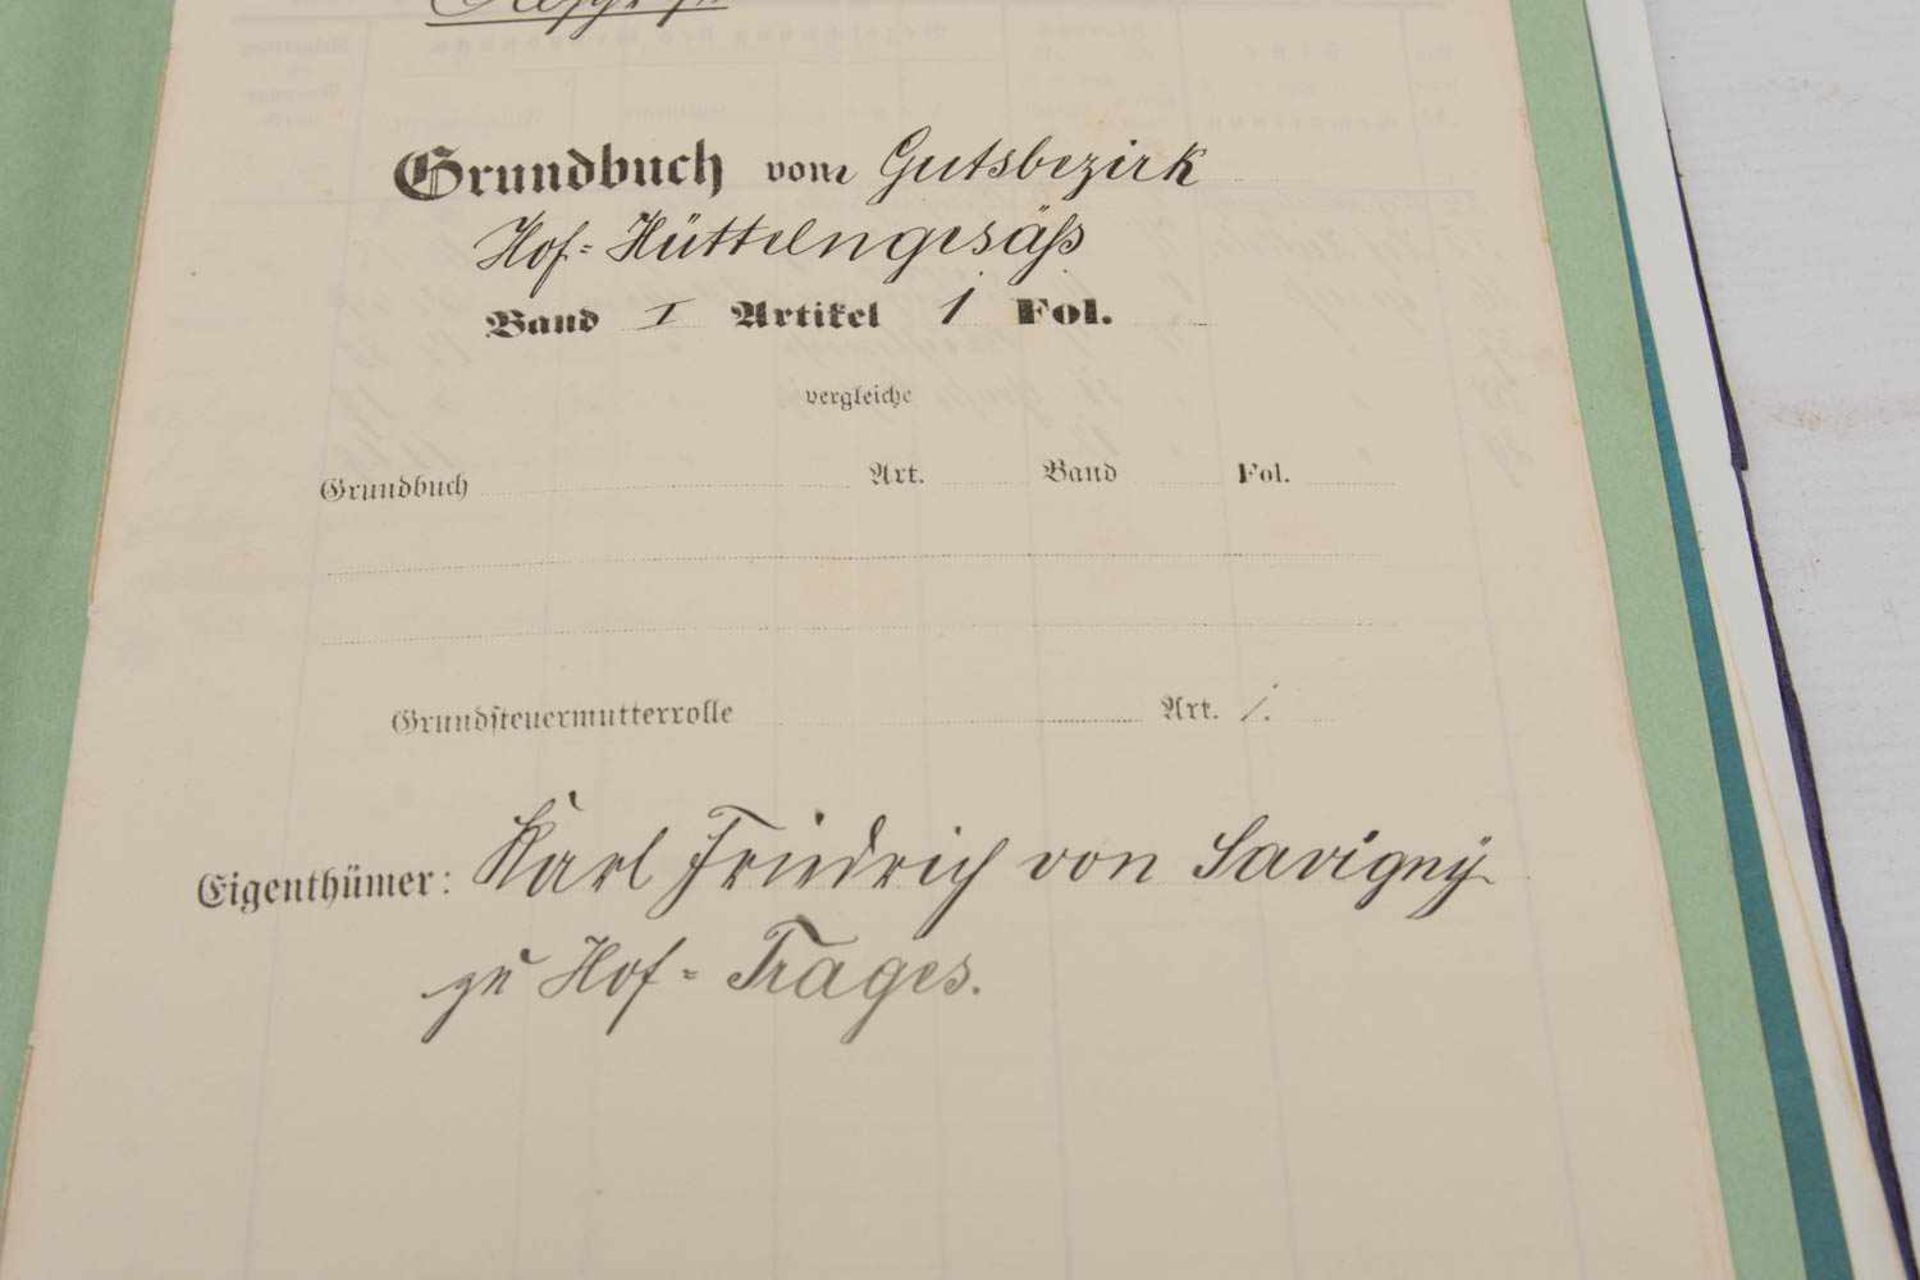 Grundbuch vom Gutsbezirk
Hof=Hüttengesäß
Band I Artikel 1 Fol.
vergleiche
Grundbuch Art. Band Fol.
Grundsteuermutterrolle Art. 1.
Eigenthümer: Karl Friedrich von Savigny
zu Hof=Trages.